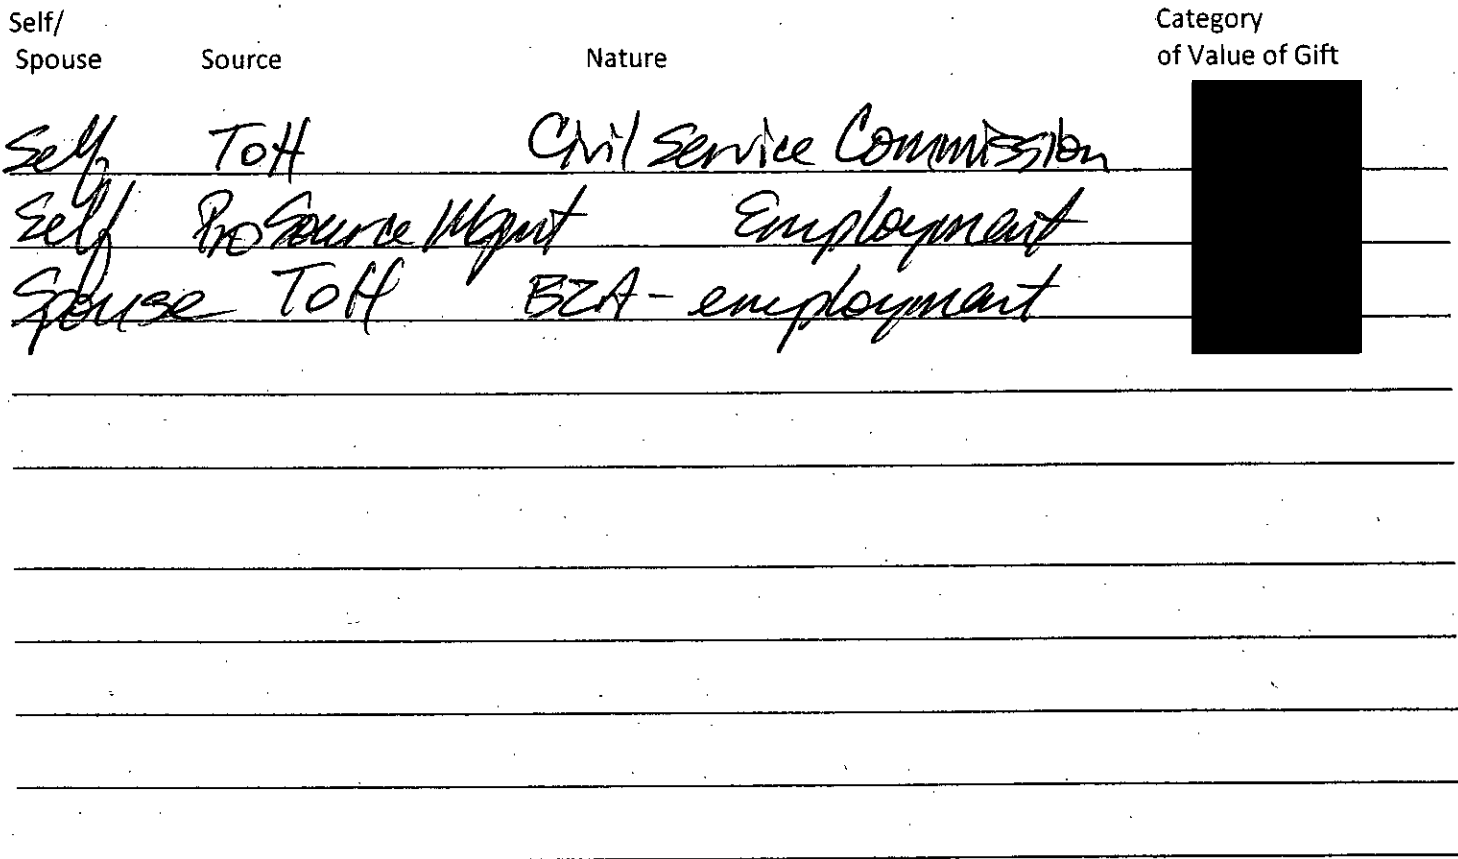 Self/ Category
Spouse Source Nature of Value of Gift
Self ToH Civil Service Commission
Self ProSource Mgmt Employment
Spouse ToH BZA - employment